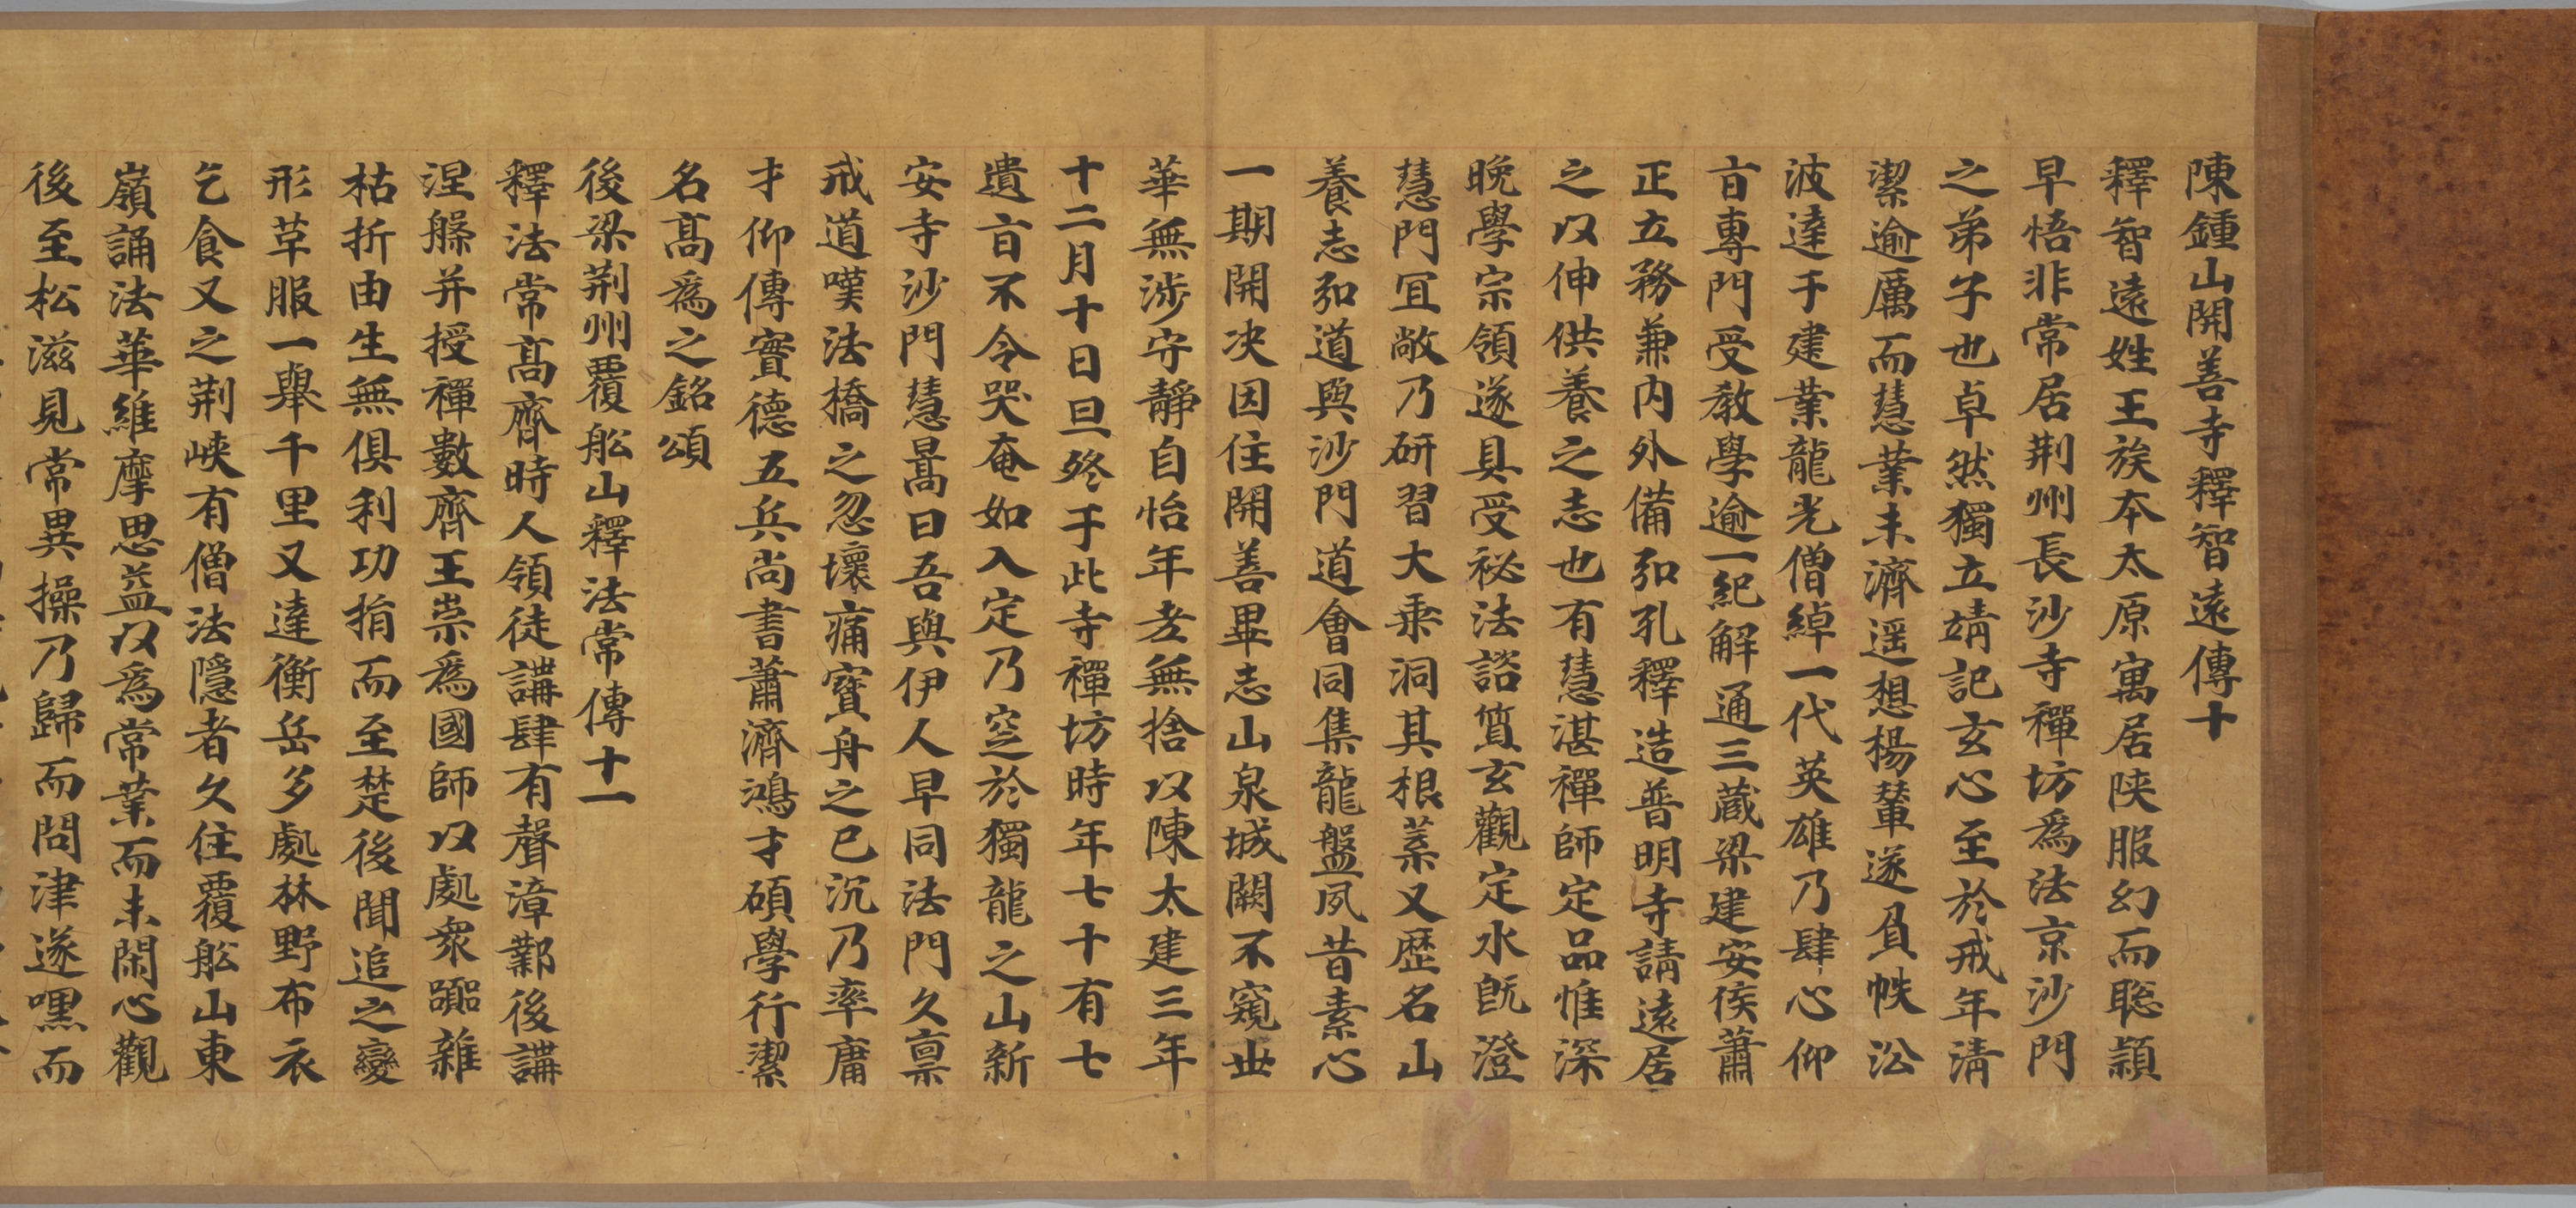 陳鍾山開善寺釋智遠傳十
釋智遠姓王族本太原寓居陝服幻而聡穎
早悟非常居荆州長沙寺禪坊爲法京沙門
之弟子也卓然獨立婧記玄心至於戒年清
潔逾厲而慧業未濟遥想楊輦遂負帙沿
波達于建業龍光僧綽一代英雄乃肆心仰
㫖專門受教學逾一紀解通三蔵梁建安侯蕭
正立務兼内外備弘孔釋造普明寺請遠居
之以伸供養之志也有慧湛禪師定品惟深
晚學宗領遂具受祕法諮質玄觀定水既澄
慧門冝敞乃研習大乗洞其根葉又歴名山
養志弘道與沙門道會同集龍盤夙昔素心
一期開决因住開善畢志山泉城闕不窺世
華無涉守靜自怡年老無捨以陳太建三年
十二月十日旦終于此寺禪坊時年七十有七
遺㫖不令哭奄如入定乃窆於獨龍之山新
安寺沙門慧暠曰吾與伊人早同法門久禀
戒道嘆法橋之忽壞痛寶舟之已沉乃率庸
才仰傳實德五兵尚書蕭濟鴻才碩學行潔
名髙爲之銘頌
後梁荆州覆舩山釋法常傳十一
釋法常髙齊時人領徒講肆有聲漳鄴後講
涅槃并授禪數齊王崇爲國師以處衆囂雜
枯折由生無俱利功捐而至楚後聞追之變
形草服一舉千里又達衡岳多處林野布衣
乞食又之荆峡有僧法隱者久住覆舩山東
嶺誦法華維摩思益以爲常業而未閑心觀
後至松滋見常異操乃歸而問津遂嘿而